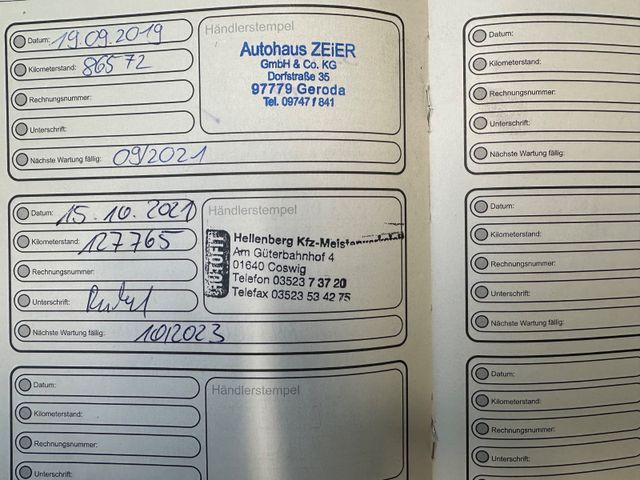 Datum: 19.09.2019
Kilometerstand: 86572
Rechnungsnummer:
Unterschrift:
Nächste Wartung fällig: 09/2021
Händlerstempel
Autohaus ZEiER
GmbH & Co. KG
Dorfstraße 35
97779 Geroda
Tel. 09747 / 841
Datum: 15.10.2021
Kilometerstand: 127765
Rechnungsnummer:
Unterschrift:
Nächste Wartung fällig: 10/2023
Händlerstempel
AUTOFIT
Hellenberg Kfz-Meisterwerkstatt
Am Güterbahnhof 4
01640 Coswig
Telefon 03523 7 37 20
Telefax 03523 53 42 75
Datum:
Kilometerstand:
Rechnungsnummer:
Unterschrift:
Händlerstempel
Datum:
Kilometerstand:
Rechnungsnummer:
Unterschrift:
Nächste Wartung fällig:
Datum:
Kilometerstand:
Rechnungsnummer:
Unterschrift:
Nächste Wartung fällig:
Datum:
Kilometerstand:
Rechnungsnummer:
Unterschrift: